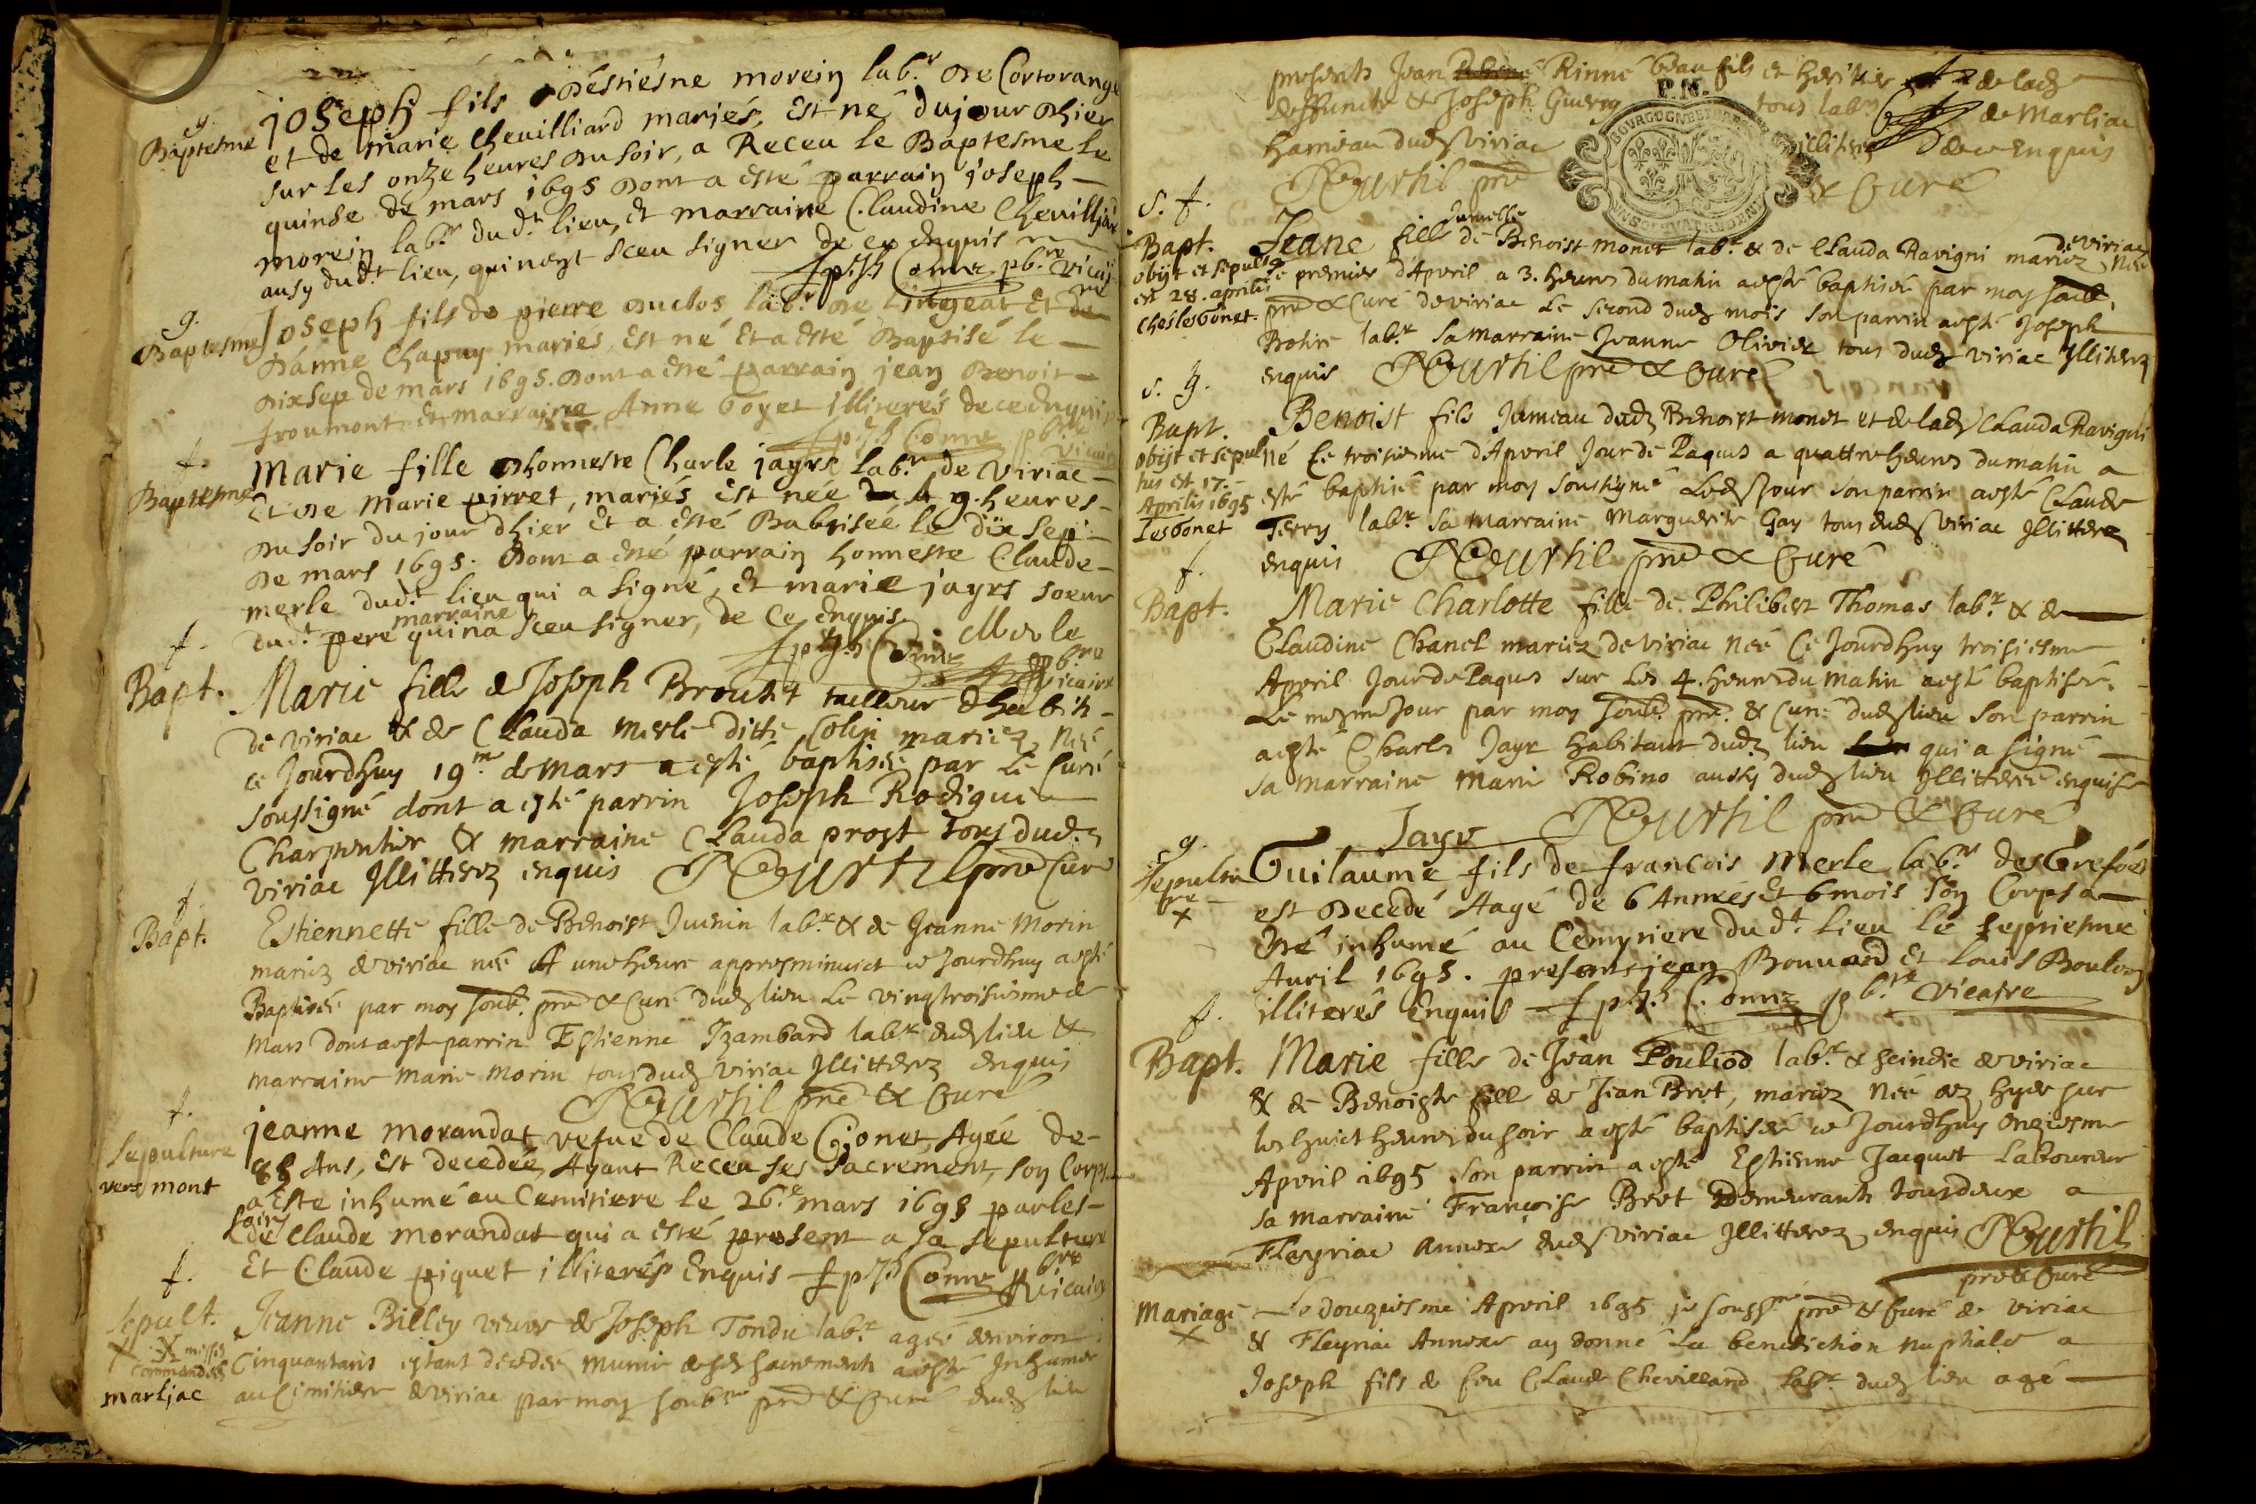 g.
Baptesme
joseph fils d'Estiésne morein lab.r de Cortorange
et de marie Cheuilliard mariés, Est né dujour d'hier
sur les onze heures du soir, a Receu le Baptesme le
quinse de mars 1695 dont a esté parrain joseph
morein lab.r du d.t lieu, et marraine Claudine Cheuilliard
ausy dud.t lieu, qui n'ont sceu signer de ce enquis
pb.re vicaire
g.
Baptesme
Joseph fils de pierre duclos lab.r de Lingeat Et de
d'anne Chapuy mariés, Est né Et a Esté Baptisé le
dixsep de mars 1695. Dont a esté parrain jean Benoit
froumont et marraine Anne Goyet illiterés de ce enquis
pb.re vicaire
f.
Baptesme
Marie fille d'honneste Charle jayrs lab.r de Viriac
Et de Marie pirret, mariés Est née 9. heures
du soir du jour d'hier Et a esté Babtisée le dix sep
De mars 1695. Dont a esté parrain honneste Claude
merle dud.t lieu qui a signé, Et marie jayrs soeur
dud.t pere marraine qui n'a sceu signer, de ce enquis
Merle
pb.re vicaire
f.
Bapt.
Marie fille de Joseph Brouhit tailleur d'habits
de viriac & de Clauda merle ditte Colin mariez, née
ce jourdhuy 19.me de mars a esté baptisée par le Curé
soussigné dont a esté parrin Joseph Rodigue
Charpentier & marraine Clauda prost tous dud.
viriac Jllitterez enquis NCurtil pre Curé
f.
Bapt.
Estiennette fille de Benoist Juenin lab.r & de Jeanne Morin
mariez de viriac née A une heure appres minuict ce jourdhuy a esté
Baptisée par moy soub. pre & Curé dud lieu Le vingtroisiesme de
Mars dont a esté parrin Estienne Jzambard lab.r dud lieu &
marraine marie morin tous dud viriac Jllitterez enquis
NCurtil pre & Curé
f.
Sepulture
vers mont
jeanne morandat vefue de Claude Gonet, Agée de
85 Ans, Est decedée, Ayant Receu ses sacrement, son Corps
a Este inhumé au Cemitiere le 26.e mars 1695 par les
soins de Claude morandat qui a esté present a sa sepulture
Et Claude piquet illiterés Enquis
pb.re vicaire
f.
Sepult.
X messes
commandées
marljac
Jeanne Billey veuve de Joseph Tondu lab.r agée denviron
Cinquantans estant decedée munie de ses sacrements a esté Jnhumée
au Cimitiere de viriac par moy soubne pre & Curé dud lieu
presents Jean Rinné beau fils et heritier de lad
deffuncte & Joseph Guerry tous lab.rs de Marliac
hameau dud viriac jllitterez de ce Enquis
NCurtil pre & Curé
P.M.
s. f.
Bapt.
obijt et sepulta
est 28. aprilis
ches les Gonet.
Jeane fille jumelle de Benoist monet lab.r & de Clauda Ravigni mariez de viriac née
le premier d'Apvril a 3. heures du matin a esté baptisée par moy soub.
pre & Curé de viriac Le second dud mois son parrin a esté Joseph
Rohin lab.r sa marraine Jeanne Olivier tous dud viriac Jllitterez
enquis NCurtil pre & Curé
s. g.
Bapt.
obijt et sepul
tus est 17.
Aprilis 1695
Les Gonet
Benoist fils Jumeau dud Benoist monet et de lad Clauda Ravigni
né Le troisiesme d'Apvril Jour de Paques a quattre heures du matin a
esté baptisé par moy soussigné Led Jour son parrin a esté Claude
Ferry lab.r sa Marraine Marguerite Gay tous dud viriac Jllitterez
enquis NCurtil pre & Curé
f.
Bapt.
Marie Charlotte fille de Philibert Thomas lab.r & de
Claudine Chanel mariez de viriac née Ce Jourdhuy troisiesme
Apvril Jour de Paques sur les 4. heures du matin a esté baptisée
Le mesme Jour par moy soub.e pre & Curé dud lieu son parrin
a esté Charles Jayr habitant dud lieu qui a signé
sa marraine marie Robino aussy dud lieu Jllitterée enquise
Jayr NCurtil pre & Curé
g.
Sepultu
re
X
Guilaume fils de francois Merle lab.r des Grefées
est Decedé Aagé de 6 Années Et 6 mois son Corps a
Esté inhumé au Cemytiere du d.t lieu le septiesme
Auril 1695. presents jean Bouuard Et Louis Boulon
illiterés Enquis pb.re vicaire
f.
Bapt.
Marie fille de Jean Pouliod lab.r & scindic de viriac
& de Benoiste fille de Jean Bret, mariez née dez hyer sur
les huict heures du soir a esté baptisée ce Jourdhuy onziesme
Apvril 1695 son parrin a esté Estienne Jacquet Laboureur
sa marraine Françoise Bret Demeurants tous deux a
Fleyriac annexe dud viriac Jllitterez enquis NCurtil
pre & Curé
Mariage
X
Le douziesme Apvril 1695 je soussne pre & Curé de viriac
& Fleyriac Annexe ay donné La benediction nuptiale a
Joseph fils de feu Claude Chevillard lab.r dud lieu agé